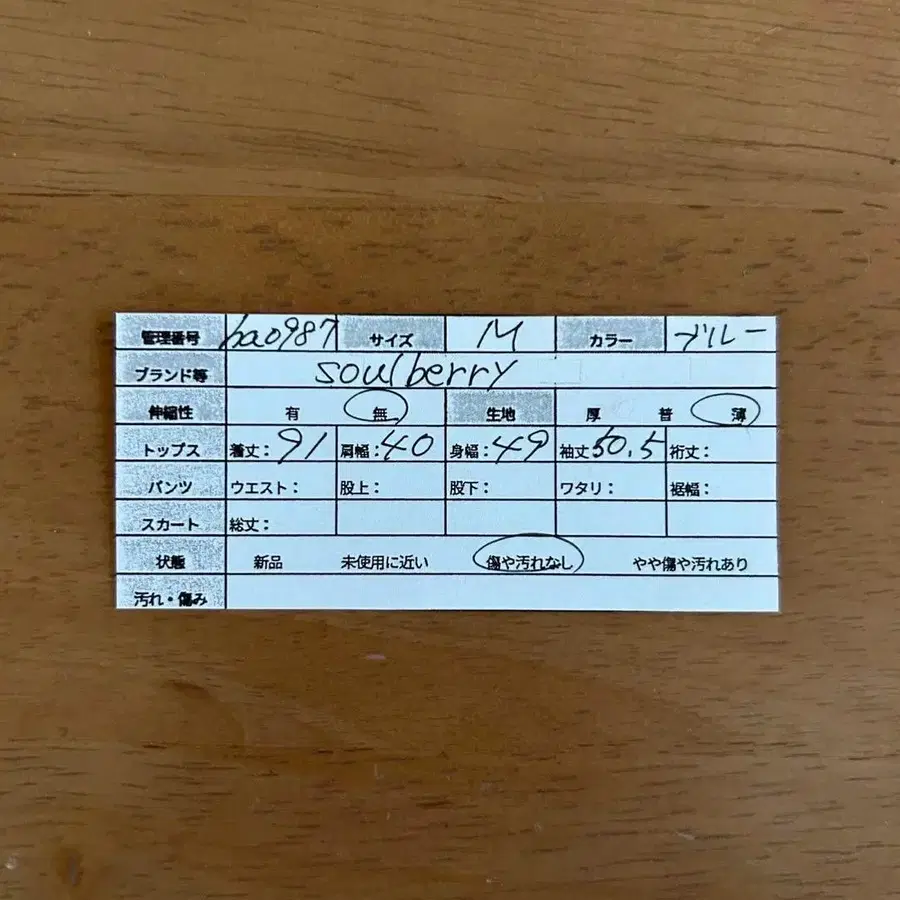 管理番号 ba0987 サイズ M カラー ブルー
ブランド等 soulberry
伸縮性 有 無 生地 厚 普 薄
トップス 着丈:91 肩幅:40 身幅:49 袖丈50.5 裄丈:
パンツ ウエスト: 股上: 股下: ワタリ: 裾幅:
スカート 総丈:
状態 新品 未使用に近い 傷や汚れなし やや傷や汚れあり
汚れ・傷み